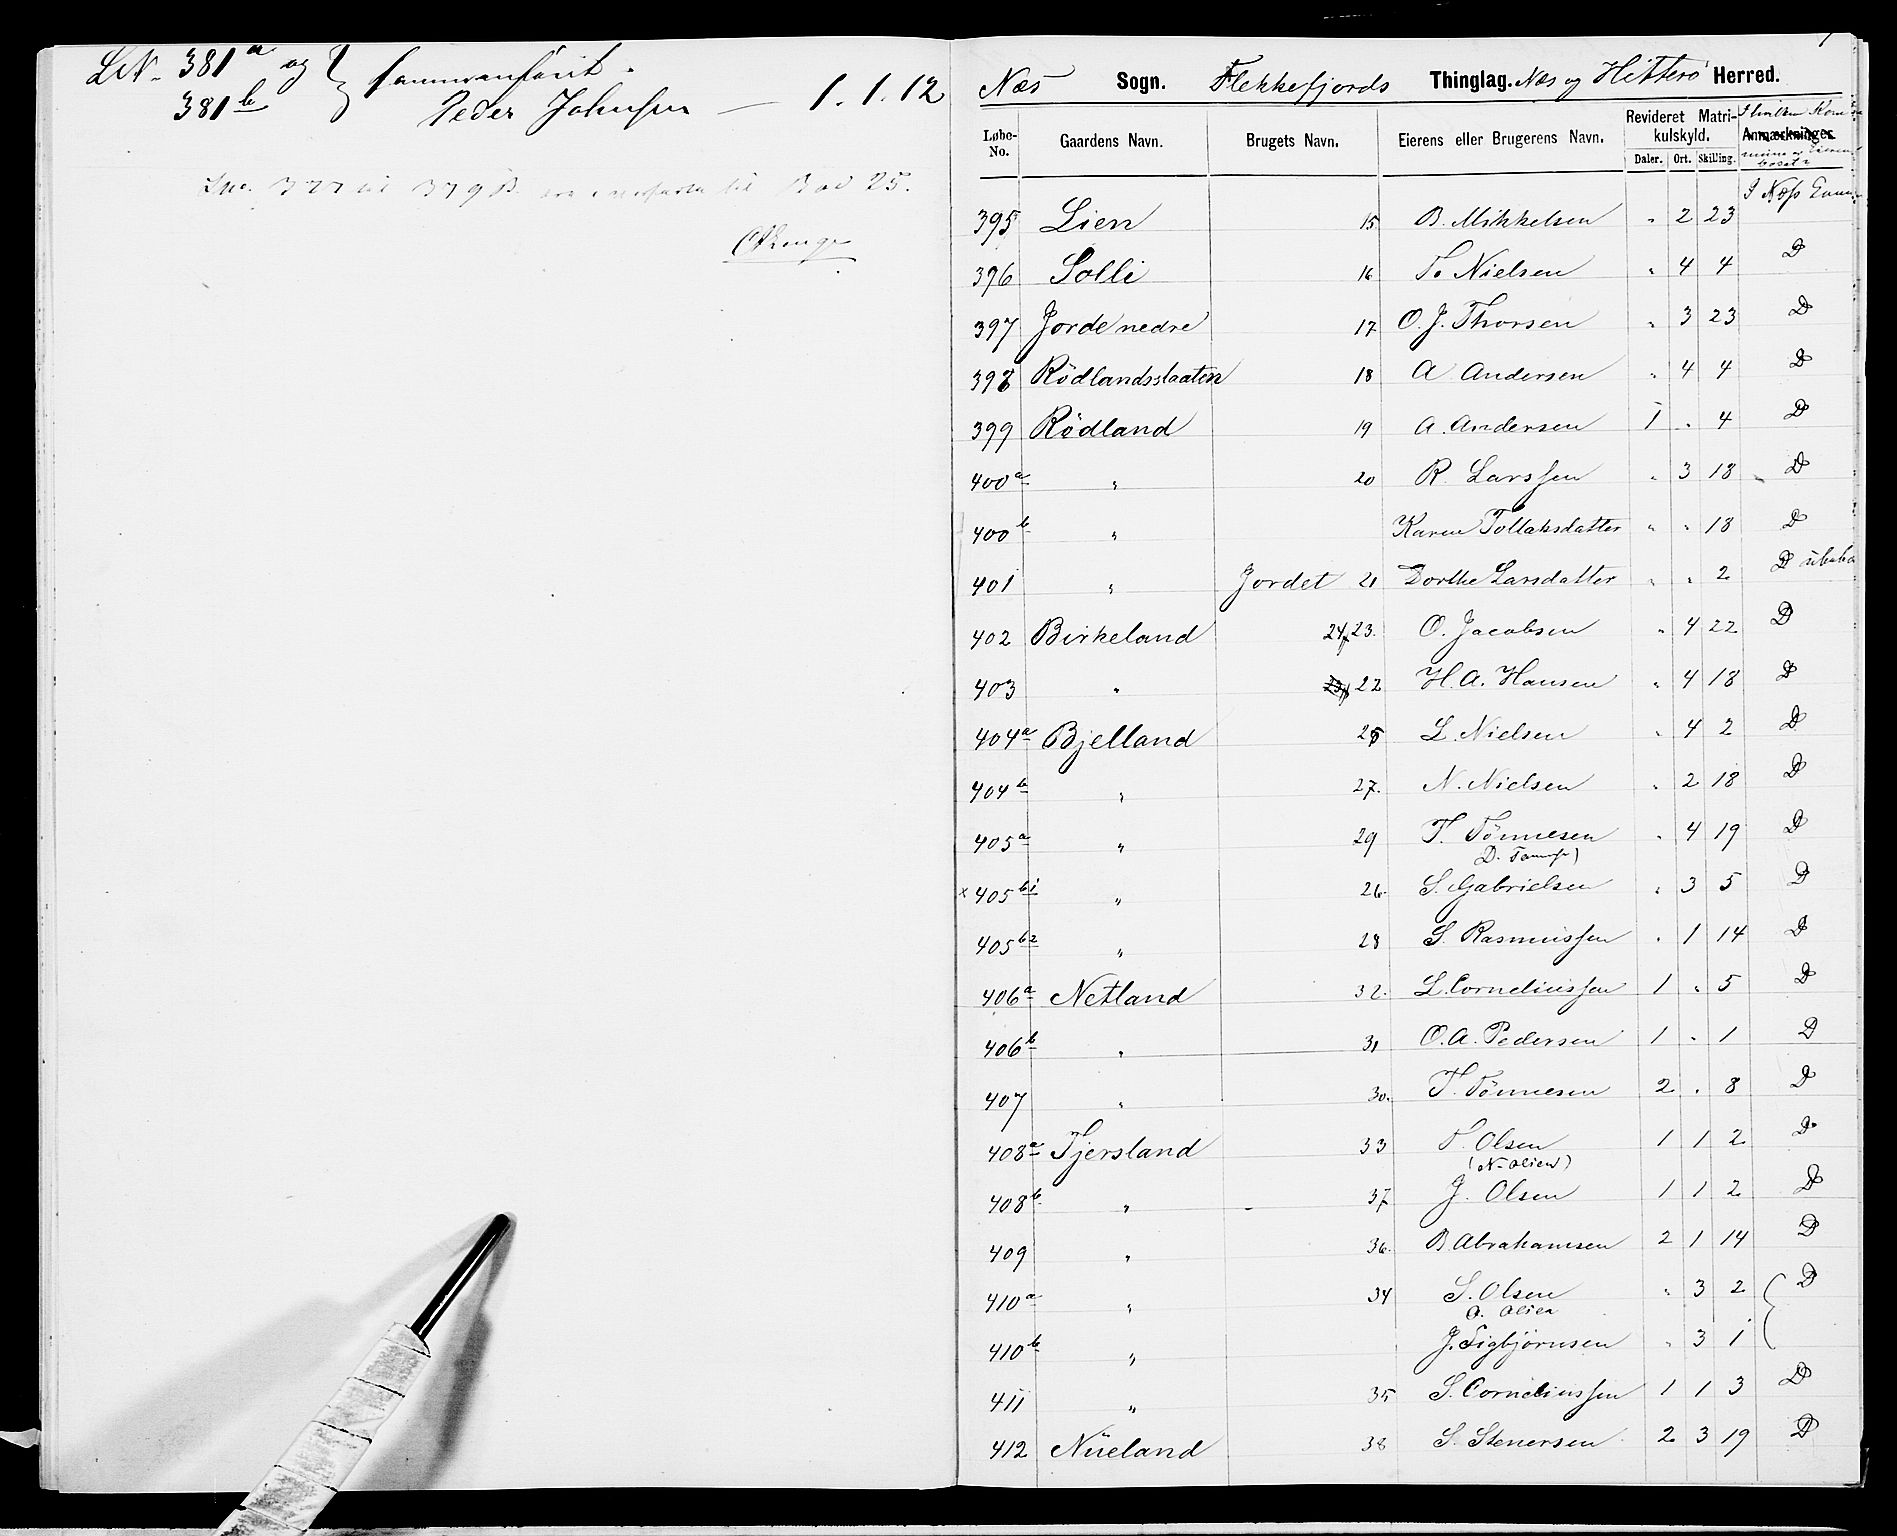 LN. 381a og } sammenføiet.
381b
Peder Johnsen — 1.1.12
Lno. 377 til 379 B. ere overførte til Bad 25.
Næs Sogn. Flekkefjords Thinglag. Næs og Hitterø Herred.
Løbe-No. Gaardens Navn. Brugets Navn. Eierens eller Brugerens Navn. Revideret Matrikulskyld. Anmærkninger.
Daler. Ort. Skilling.
395 Lien 15 B. Mikkelsen " 2 23 I Næss
396 Solli 16 T. Nielsen " 4 4 D
397 Jorde nedre 17 O. J. Thorsen " 3 23 D
398 Rödlandsslaaten 18 A Andersen " 4 4 D
399 Rödland 19 A. Andersen 1 " 4 D
400a " 20 R. Larssen " 3 18 D
400b " Karen Tollaksdatter " " 18 D
401 " Jordet 21 Dorthe Larsdatter " " 2 D
402 Birkeland 24, 23. O. Jacobsen " 4 22 D
403 " 22 H. A. Hansen " 4 18 D
404a Bjelland 25 L. Nielsen " 4 2 D
404b " 27. N. Nielsen " 2 18 D
405a " 29 T. Tönnesen " 4 19 D
x 405b1 " 26. S. Gabrielsen " 3 5 D
405b2 " 28 S. Rasmussen " 1 14 D
406a Netland 32. L. Corneliussen 1 " 5 D
406b " 31 O. A. Pedersen 1 " 1 D
407 " 30. T. Tönnesen 2 " 8 D
408a Tjersland 33 T. Olsen 1 1 2 D
408b " 37 J. Olsen 1 1 2 D
409 " 36. B Abrahamsen 2 1 14 D
410a " 34 S. Olsen " 3 2 D
410b " J. Sigbjörnsen " 3 1
411 " 35 S. Corneliussen 1 1 3 D
412 Nüeland 38 S. Stenersen 2 3 19 D